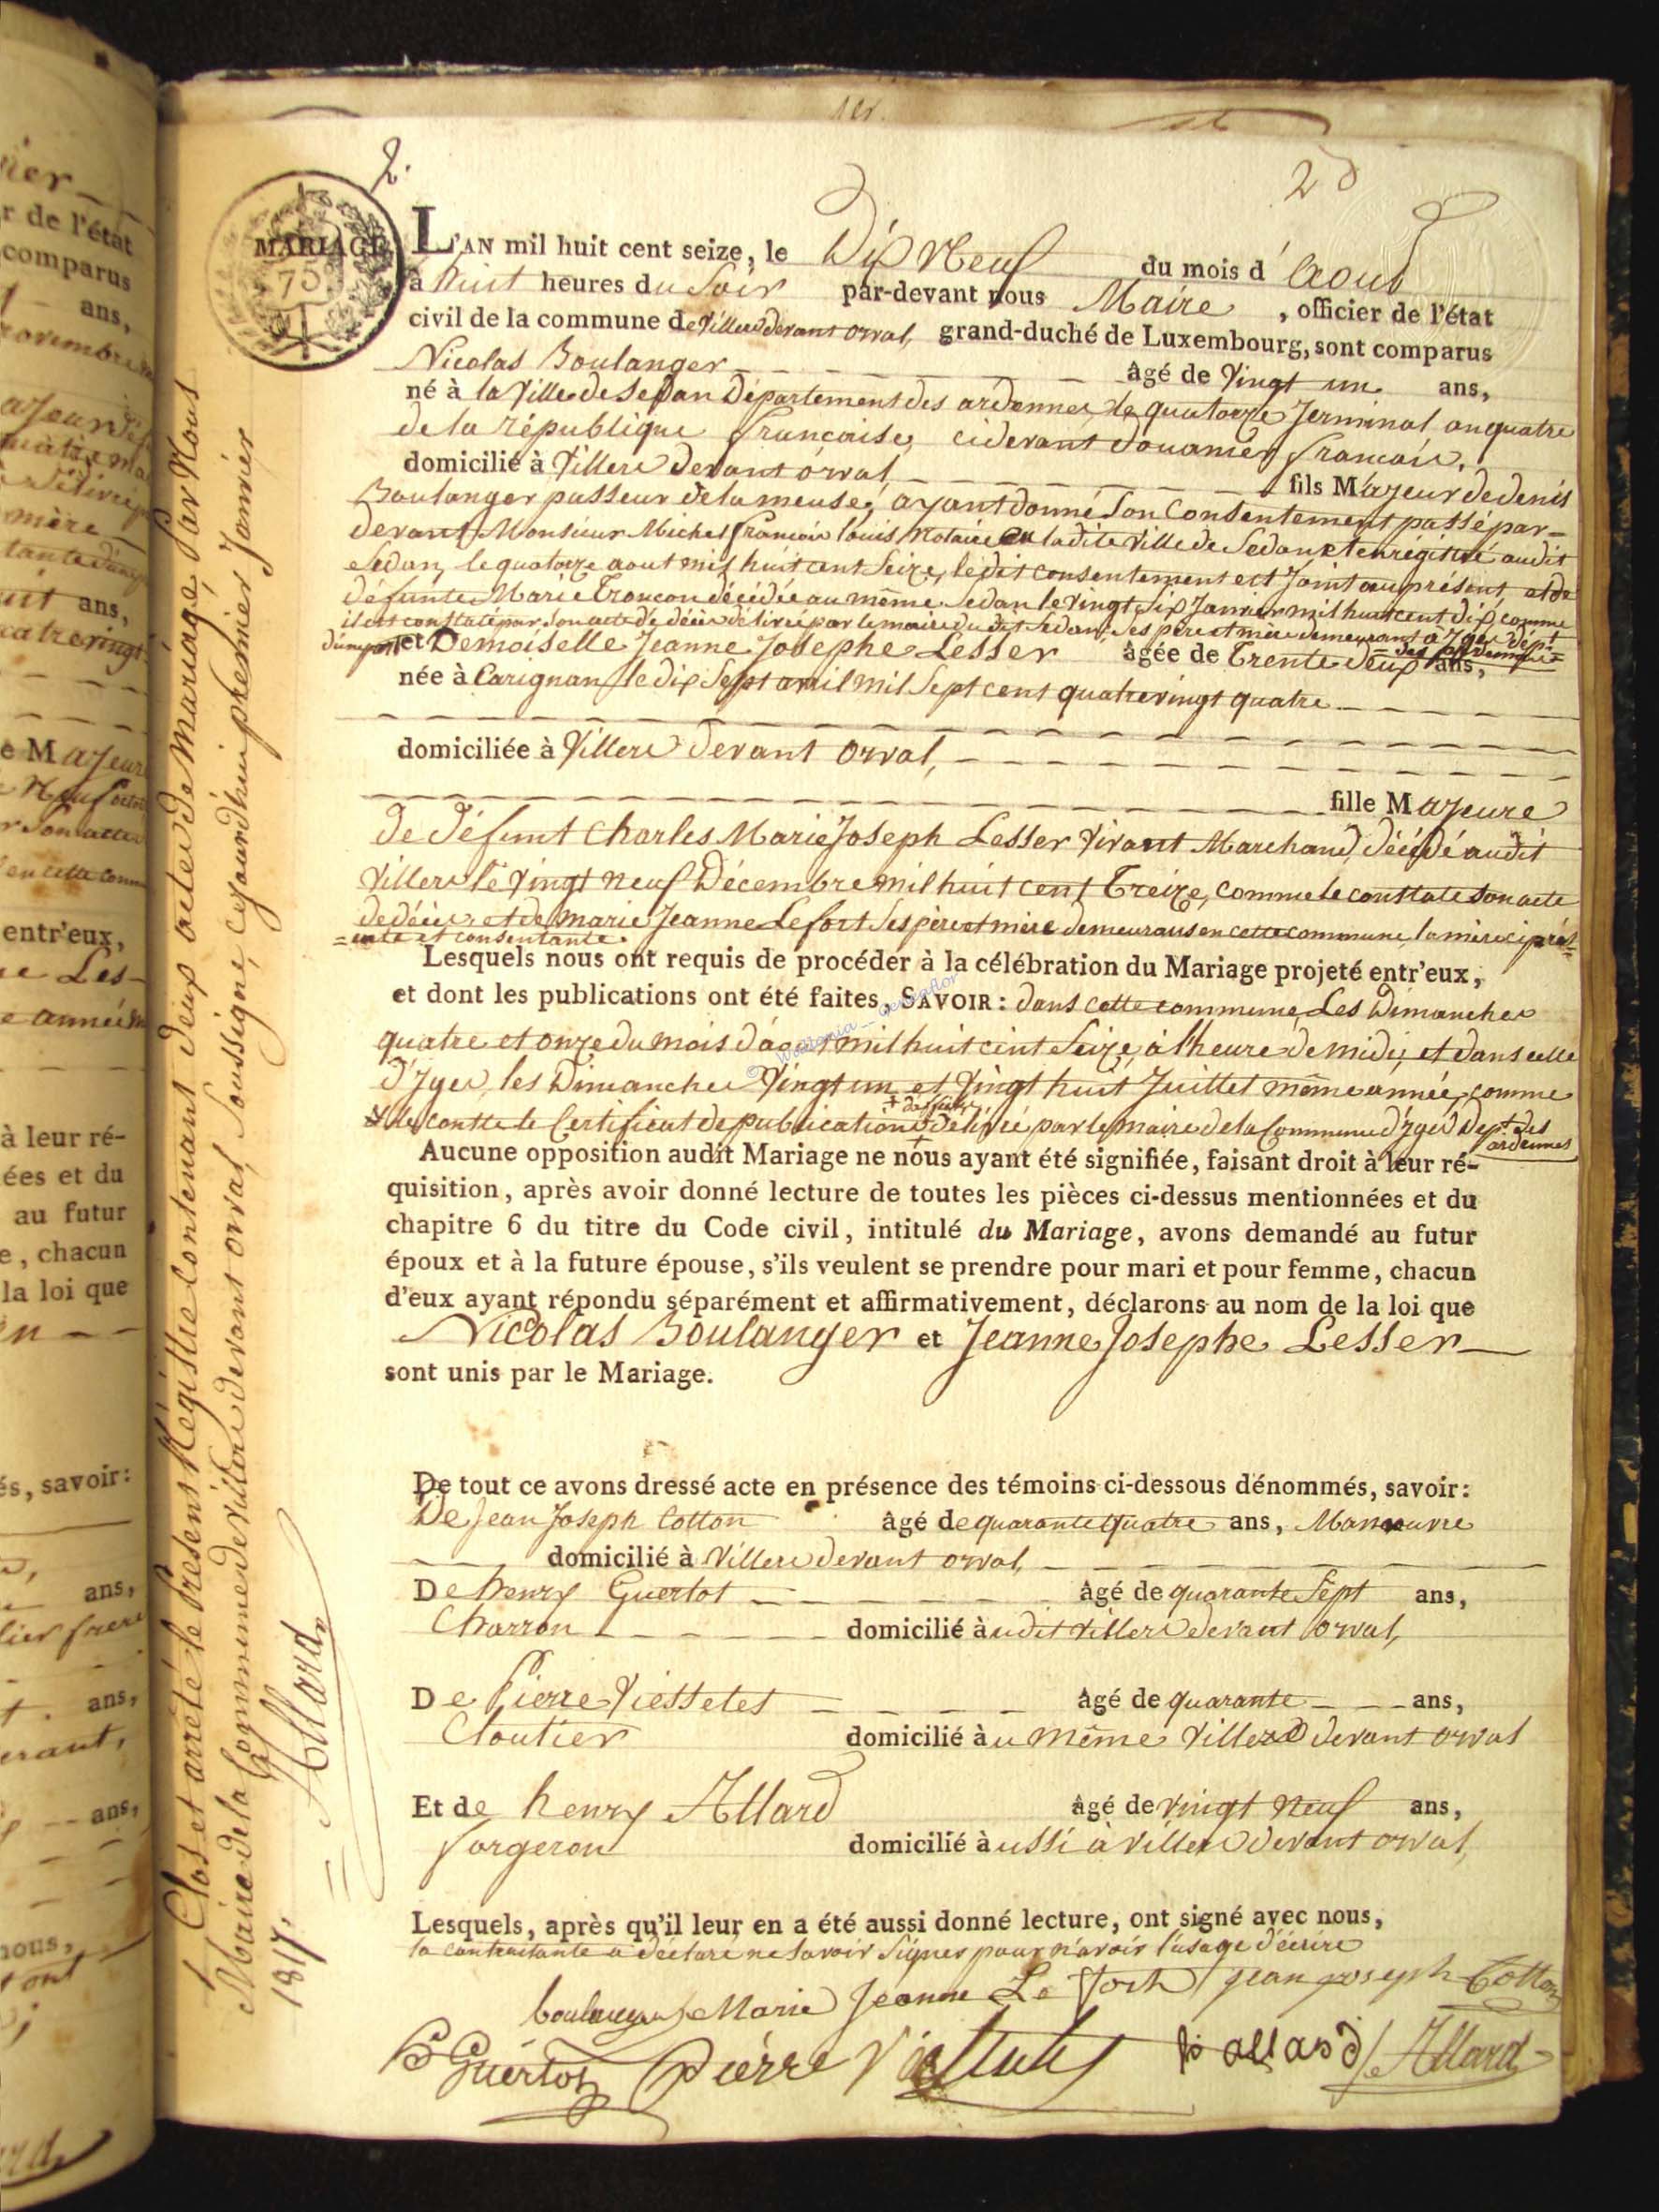 2.
2d
MARIAGE
75
L'AN mil huit cent seize, le Dix Neuf du mois d'Aout
à huit heures du Soir par-devant nous Maire, officier de l'état
civil de la commune de Villers devant orval, grand-duché de Luxembourg, sont comparus
Nicolas Boulanger âgé de Vingt un ans,
né à la Ville de Sedan Département des ardennes, le quatorze Jerminal an quatre
de la république francaise, cidevant douanier francais,
domicilié à Villers devant orval, fils Majeur de denis
Boulanger passeur de la meuse, ayant donné Son Consentement passé par-
devant Monsieur Michel francois louis, Notaire en ladite ville de Sedan et enrégistré audit
Sedan, le quatorze aout mil huit cent Seize, ledit consentement est Joint au présent et de
défunte Marie Troncon décédée au même Sedan le vingt Six Janvier mil huit cent dix comme
il est constaté par Son acte de décès délivrée par le maire du dit Sedan, Ses père et mère demeurant à Jges dépt.
des ardennes
d'une part et Demoiselle Jeanne Josephe Lesser âgée de Trente deux ans,
née à Carignan le dix Sept avril mil Sept cent quatre vingt quatre
domiciliée à Villers devant orval,
fille Majeure
de défunt Charles Marie Joseph Lesser Vivant Marchand, décédé audit
Villers le Vingt neuf Décembre mil huit cent Treize, comme le constate Son acte
de décès, et de Marie Jeanne Lefort Ses père et mère demeurans en cette commune, la mère ci prés-
=ente et consentante.
Lesquels nous ont requis de procéder à la célébration du Mariage projeté entr'eux,
et dont les publications ont été faites, SAVOIR: dans cette commune, Les Dimanches
quatre et onze du mois d'aout mil huit cent Seize, à l'heure de midi, et dans celle
d'Jges, les Dimanches Vingt un et Vingt huit Juillet même année, comme
le constte le Certificat de publication délivrée par le maire de la Commune d'Jges Dept. des
ardennes
Aucune opposition audit Mariage ne nous ayant été signifiée, faisant droit à leur ré-
quisition, après avoir donné lecture de toutes les pièces ci-dessus mentionnées et du
chapitre 6 du titre du Code civil, intitulé du Mariage, avons demandé au futur
époux et à la future épouse, s'ils veulent se prendre pour mari et pour femme, chacun
d'eux ayant répondu séparément et affirmativement, déclarons au nom de la loi que
Nicolas Boulanger et Jeanne Josephe Lesser
sont unis par le Mariage.
De tout ce avons dressé acte en présence des témoins ci-dessous dénommés, savoir:
De Jean Joseph Cotton âgé de quarante quatre ans, Manouvre
domicilié à Villers devant orval,
De henry Guertot âgé de quarante Sept ans,
Charron domicilié audit Villers devant orval,
De Pierre Viesselet âgé de quarante ans,
Cloutier domicilié au même Villers devant orval
Et de henry Allard âgé de vingt neuf ans,
forgeron domicilié aussi à Villers devant orval,
Lesquels, après qu'il leur en a été aussi donné lecture, ont signé avec nous,
la contractante a déclaré ne Savoir Signer pour n'avoir l'usage d'écrire
boulanger Marie Jeanne Le fort jean joseph Cotton
h Guértot pierre h allard Allard
Clos et arrêté le Présent Régistre Contenant deux actes de Mariage, Par Nous
Maire de la Commune de Villers devant orval, Soussigné, ce jourd'hui premier Janvier
1817. Allard